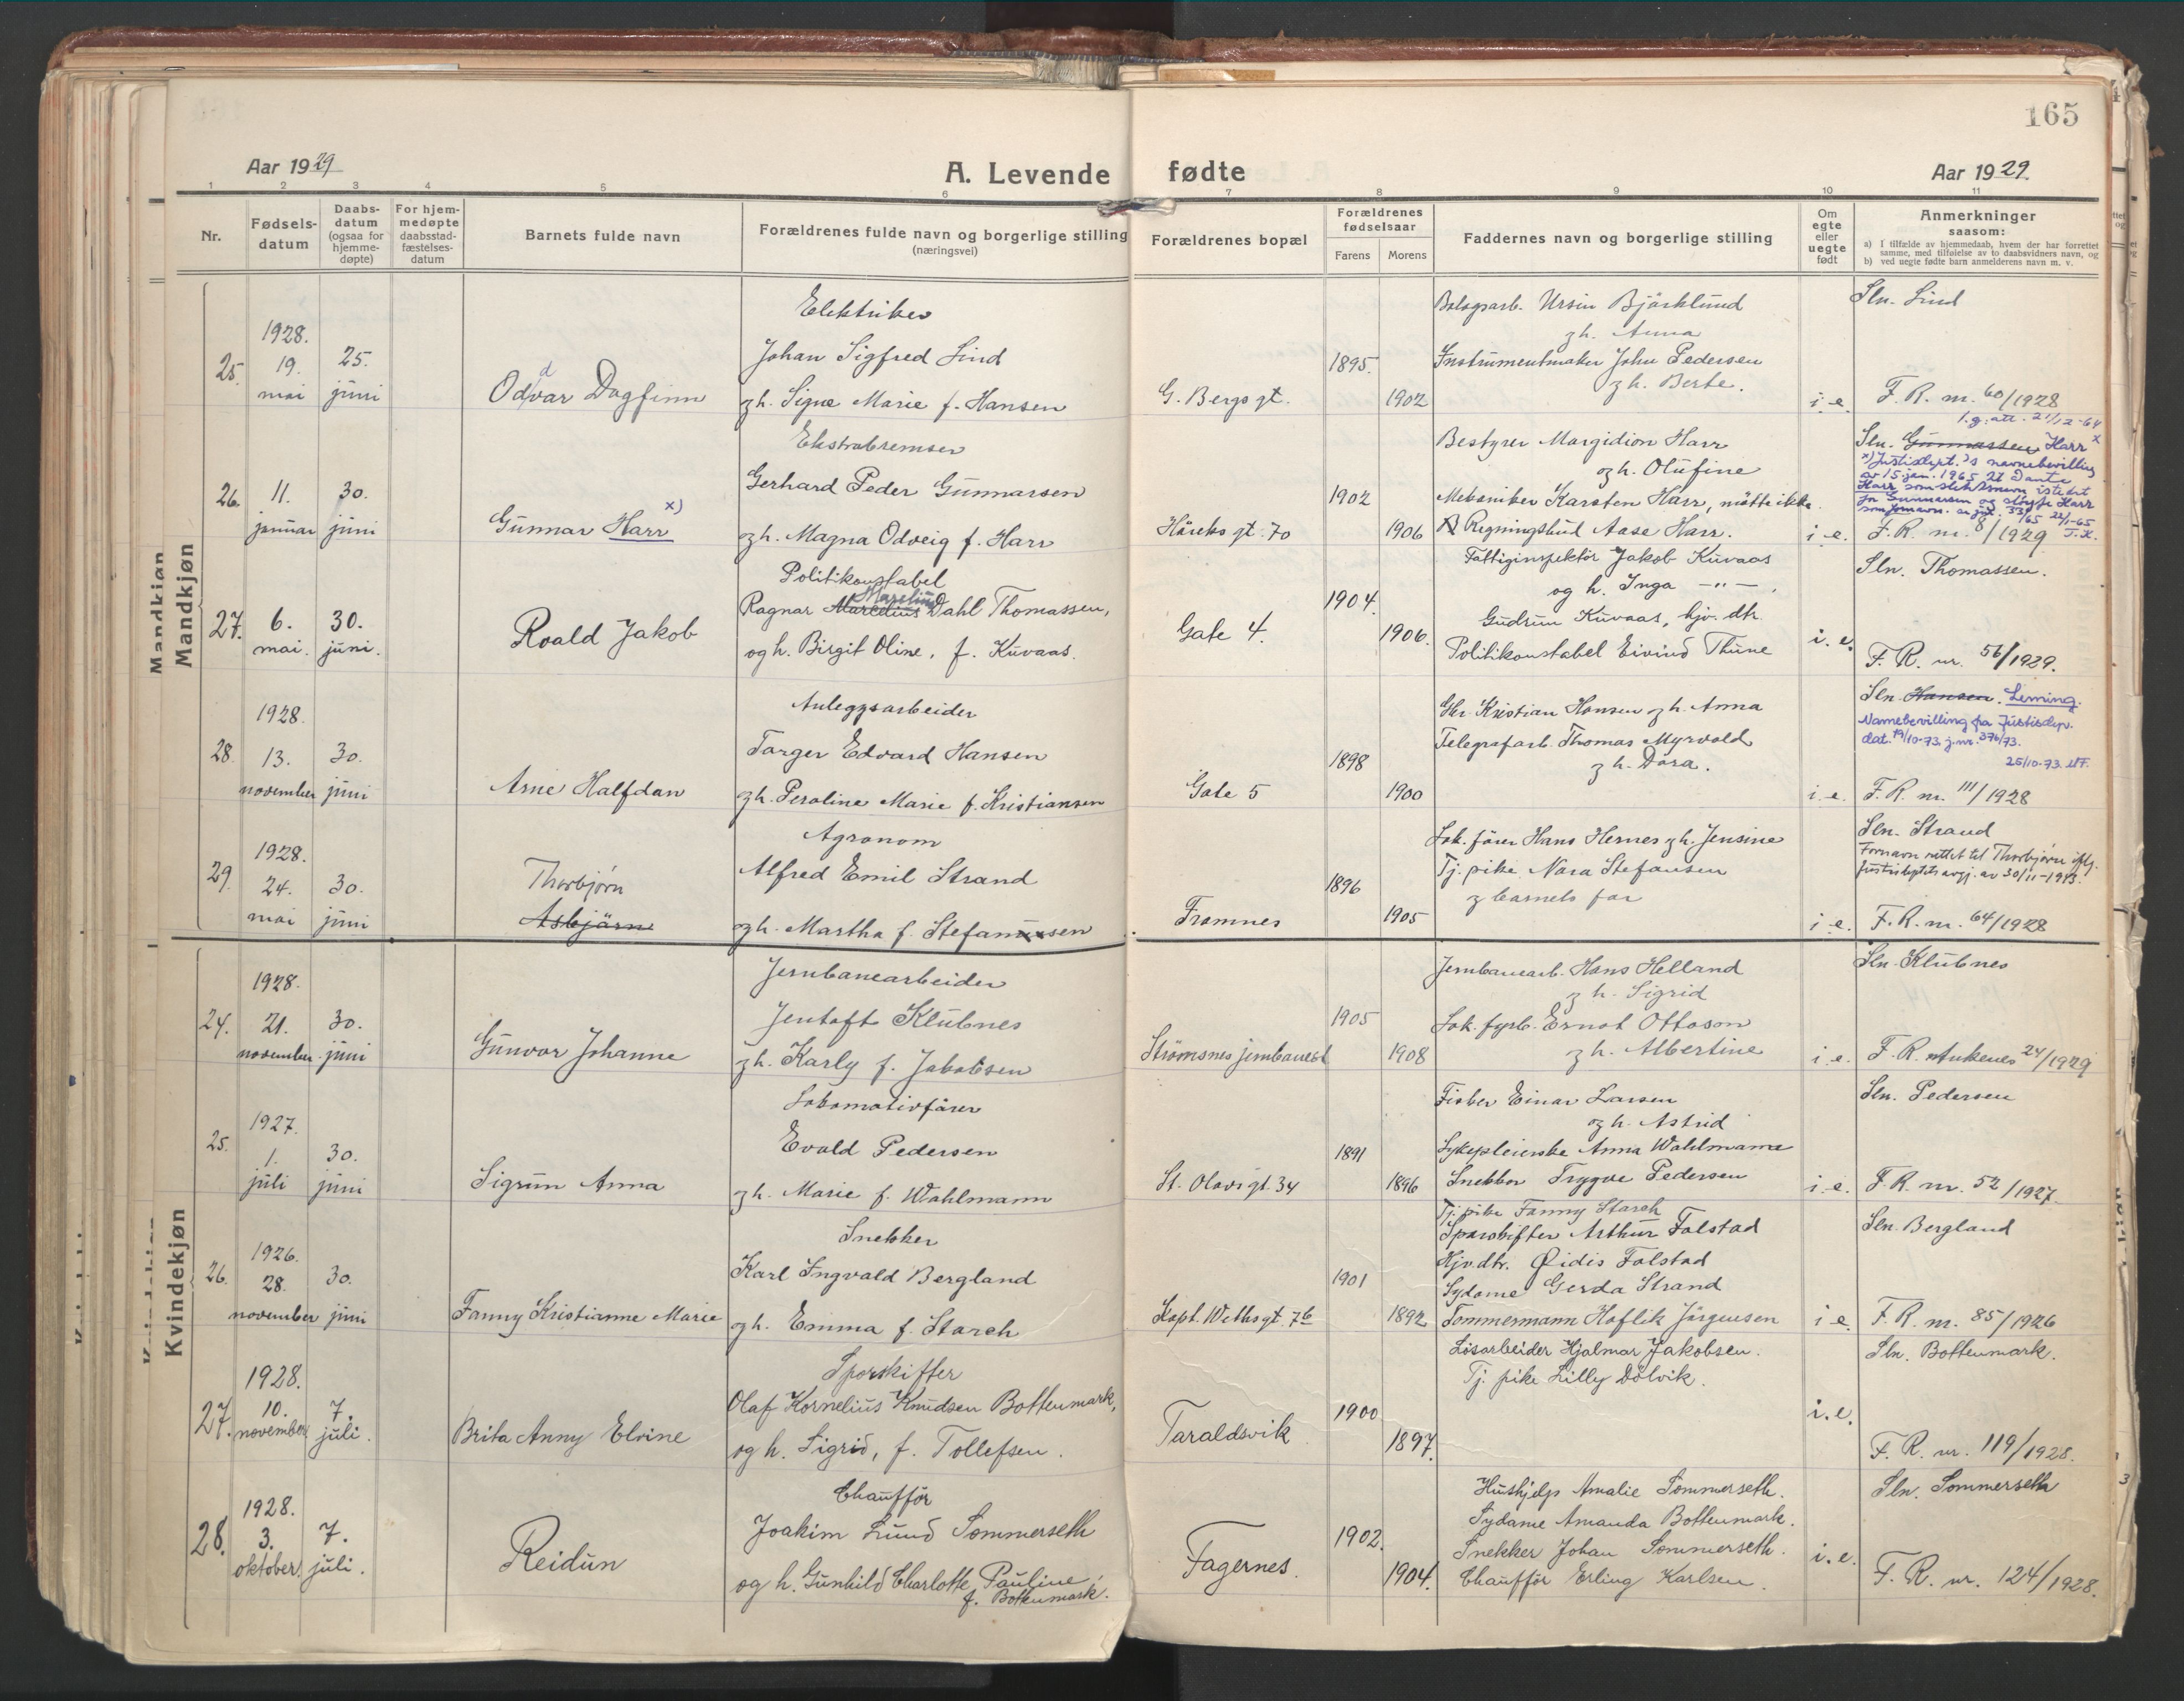 165
Aar 1929
A. Levende fødte
Aar 1929.
1 2 3 4 5 6 7 8 9 10 11
Nr.
Fødselsdatum
Daabsdatum (ogsaa for hjemmedøpte)
For hjemmedøpte daabsstadfæstelsesdatum
Barnets fulde navn
Forældrenes fulde navn og borgerlige stilling
(næringsvei)
Forældrenes bopæl
Forældrenes fødselsaar
Farens Morens
Faddernes navn og borgerlige stilling
Om egte eller uegte født
Anmerkninger
saasom:
a) I tilfælde av hjemmedaab, hvem der har forrettet samme, med tilføielse av to daabsvidners navn, og
b) ved uegte fødte barn anmelderens navn m. v.
Mandkjøn
25. 1928. 19. mai
25. juni
Oddvar Dagfinn
Elektriker
Johan Sigfred Lind
og h. Signe Marie f. Hansen
G. Bergs gt.
1895. 1902
Bolagsarb. Ursin Bjørklund
og h. Anna
Instrumentmaker John Pedersen
og h. Berte.
i. e.
Sln. Lind
F. R. nr. 60/1928
1. g. att. 21/12-64
26. 11. januar
30. juni
Gunnar Harr x)
Ekstrabremser
Gerhard Peder Gunnarsen
og h. Magna Odveig f. Harr
Håreks gt. 70
1902 1906
Bestyrer Margidion Harr
og h. Olufine
Mekaniker Karsten Harr, møtte ikke.
Regningsbud Aase Harr.
i. e.
Sln. Gunnarssen Harr x
x) Justisdept.'s navnebevilling
av 15 jan. 1965 til å anta
Harr som slektsnavn istedet
for Gunnarsen og sløyfe Harr
som fornavn.
F. R. nr. 8/1929
27. 6. mai.
30. juni.
Roald Jakob
Politikonstabel
Marelius
Ragnar Marcelius Dahl Thomassen,
og h. Birgit Oline, f. Kuvaas.
Gate 4.
1904. 1906.
Fattiginspektør Jakob Kuvaas
og h. Inga —"—.
Gudrun Kuvaas, hjv. dtr.
Politikonstabel Eivind Thune
i. e.
Sln. Thomassen.
F. R. nr. 56/1929.
28. 1928. 13. november
30. juni
Arne Halfdan
Anleggsarbeider
Torger Edvard Hansen
og h. Peroline Marie f. Kristiansen
Gate 5
1898 1900
Gbr. Kristian Hansen og h. Anna
Telegrafarb. Thomas Myrvold
og h. Dora.
i. e.
Sln. Hansen. Leming.
Navnebevilling fra Justisdep.
dat. 19/10-73. j.nr. 376/73.
25/10-73.
F. R. nr. 111/1928
29. 1928. 24. mai
30. juni
Thorbjørn
Asbjørn
Agronom
Alfred Emil Strand
og h. Martha f. Stefanussen
Framnes
1896 1905
Lok.fører Hans Hernes og h. Jensine
Tj. pike Nora Stefansen
og barnets far
i. e.
Sln. Strand
Fornavn rettet til Thorbjørn iflg.
Justisdeptets avgj. av 30/11-1943.
F. R. nr. 64/1928
Kvindekjøn
24. 1928. 21. november
30. juni
Gunvor Johanne
Jernbanearbeider
Jentoft Klubnes
og h. Karly f. Jakobsen
Strømsnes jernbanest
1905 1908
Jernbanearb. Hans Helland
og h. Sigrid
Lok. fyrb. Ernst Ottoson
og h. Albertine
i. e.
Sln. Klubnes
F. R. Ankenes 24/1929
25. 1927. 1. juli
30. juni
Sigrun Anna
Lokomotivfører
Evald Pedersen
og h. Marie f. Wahlmann
St. Olavsgt. 34
1891 1896
Fisker Einar Larsen
og h. Astrid
Sykepleierske Anna Wahlmann
Snekker Trygve Pedersen
i. e.
Sln. Pedersen
F. R. nr. 52/1927.
26. 1926. 28. november
30. juni
Fanny Kristianne Marie
Snekker
Karl Ingvald Bergland
og h. Emma f. Storch
1901 1892
Tj. pike Fanny Storch
Sporskifter Arthur Falstad
Hjv. dtr. Øidis Falstad
Sydame Gerda Strand
Tømmermann Hoflik Jørgensen
i. e.
Sln. Bergland
F. R. nr. 85/1926
27. 1928. 10. november
7. juli.
Brita Anny Elvine
Sporskifter
Olaf Kornelius Knudsen Bottenmark,
og h. Sigrid, f. Tollefsen.
Taraldsvik
1900 1897.
Løsarbeider Hjalmar Jakobsen.
Tj. pike Lilly Dølvik.
i. e.
Sln. Bottenmark.
F. R. nr. 119/1928.
28. 1928. 3. oktober.
7. juli.
Reidun
Chauffør
Joakim Lund Sommerseth
og h. Gunhild Charlotte Pauline,
f. Bottenmark.
Fagernes.
1902. 1904.
Hushjelp Amalie Sommerseth.
Sydame Amanda Bottenmark.
Snekker Johan Sommerseth.
Chauffør Erling Karlsen.
i. e.
Sln. Sommerseth
F. R. nr. 124/1928.